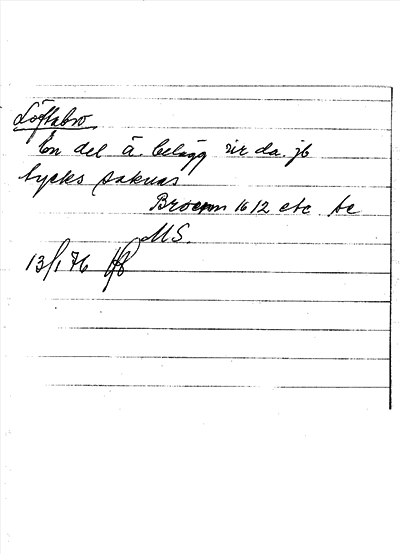 Löftabro
En del ä. belägg ur da. jb
tycks saknas
Broenn 1612 etc. se
MS.
13/1 76